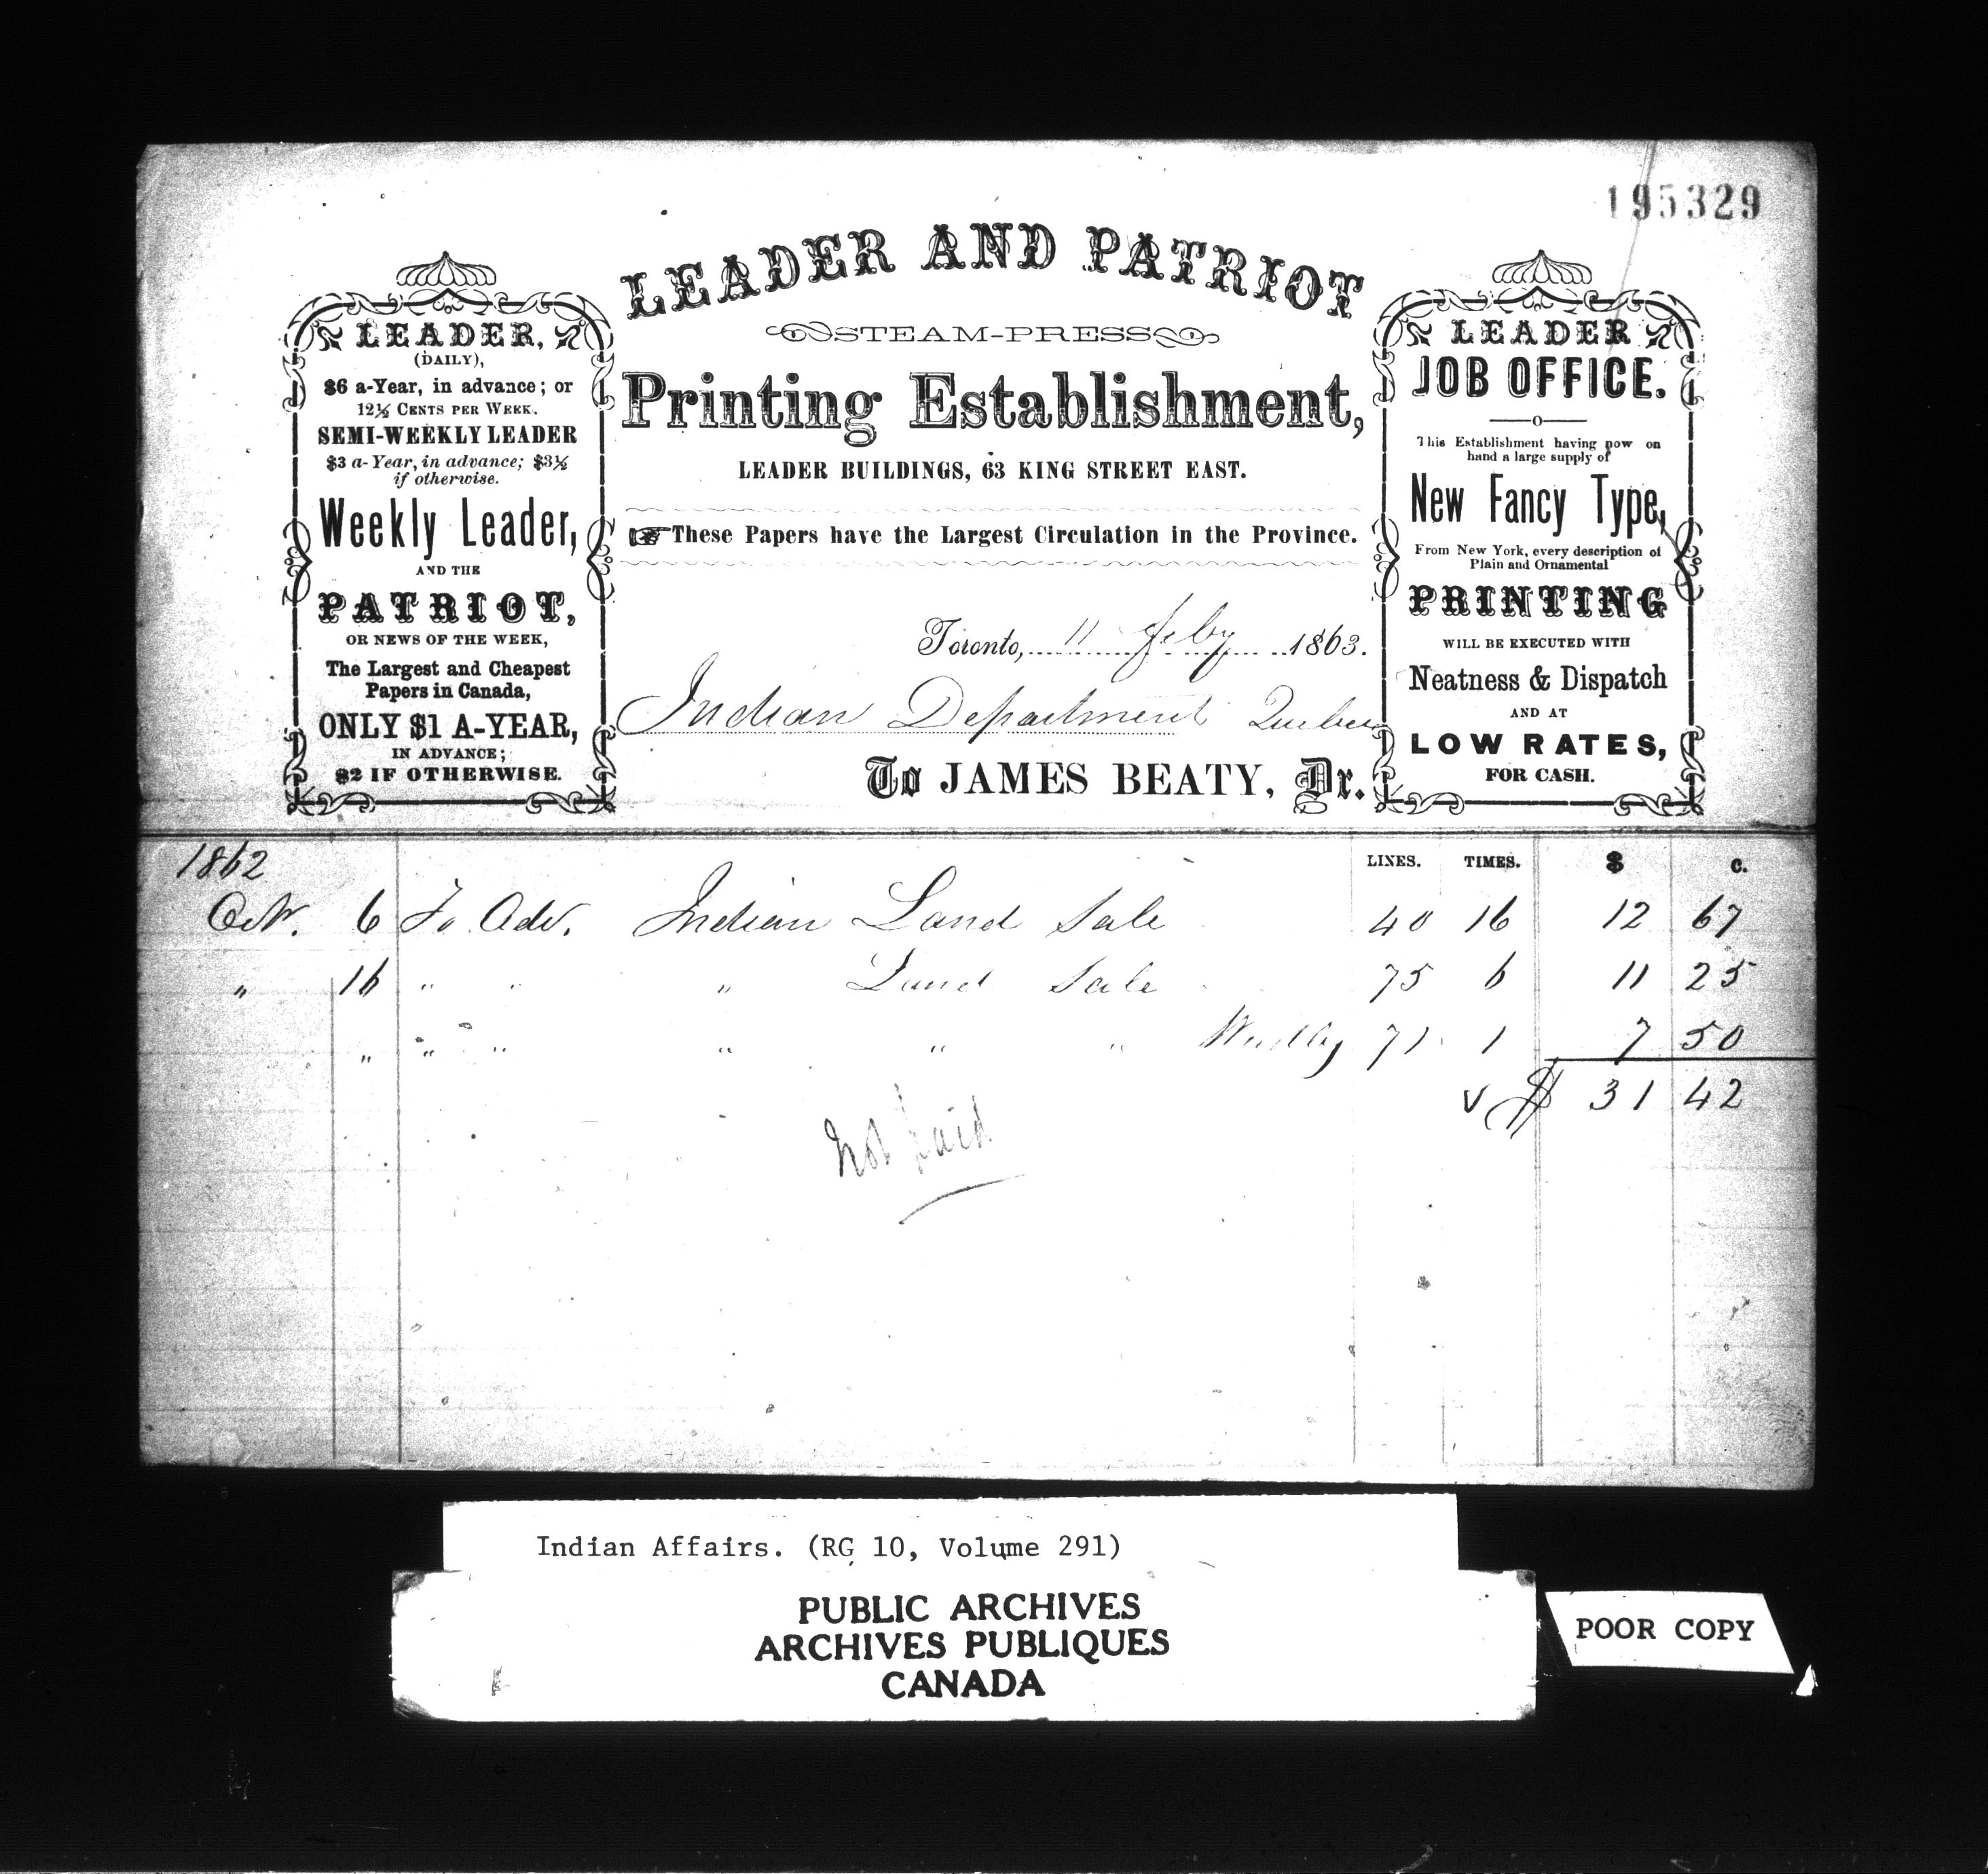 195329
LEADER AND PATRIOT
STEAM-PRESS
Printing Establishment,
LEADER BUILDINGS, 63 KING STREET EAST.
☞ These Papers have the Largest Circulation in the Province.
LEADER,
(DAILY),
$6 a-Year, in advance; or
12½ CENTS PER WEEK.
SEMI-WEEKLY LEADER
$3 a-Year, in advance; $3½
if otherwise.
Weekly Leader,
AND THE
PATRIOT,
OR NEWS OF THE WEEK,
The Largest and Cheapest
Papers in Canada,
ONLY $1 A-YEAR,
IN ADVANCE;
$2 IF OTHERWISE.
LEADER
JOB OFFICE.
This Establishment having now on
hand a large supply of
New Fancy Type,
From New York, every description of
Plain and Ornamental
PRINTING
WILL BE EXECUTED WITH
Neatness & Dispatch
AND AT
LOW RATES,
FOR CASH.
Toronto, 11 Feby 1863.
Indian Department Quebec
To JAMES BEATY, Dr.
1862 LINES. TIMES. $ c.
Octr. 6 To Adv. Indian Land Sale 40 16 12 67
" 16 " " " Land Sale 75 6 11 25
" " " " " " Weekly 71 1 7 50
$ 31 42
not paid
Indian Affairs. (RG 10, Volume 291)
PUBLIC ARCHIVES
ARCHIVES PUBLIQUES
CANADA
POOR COPY